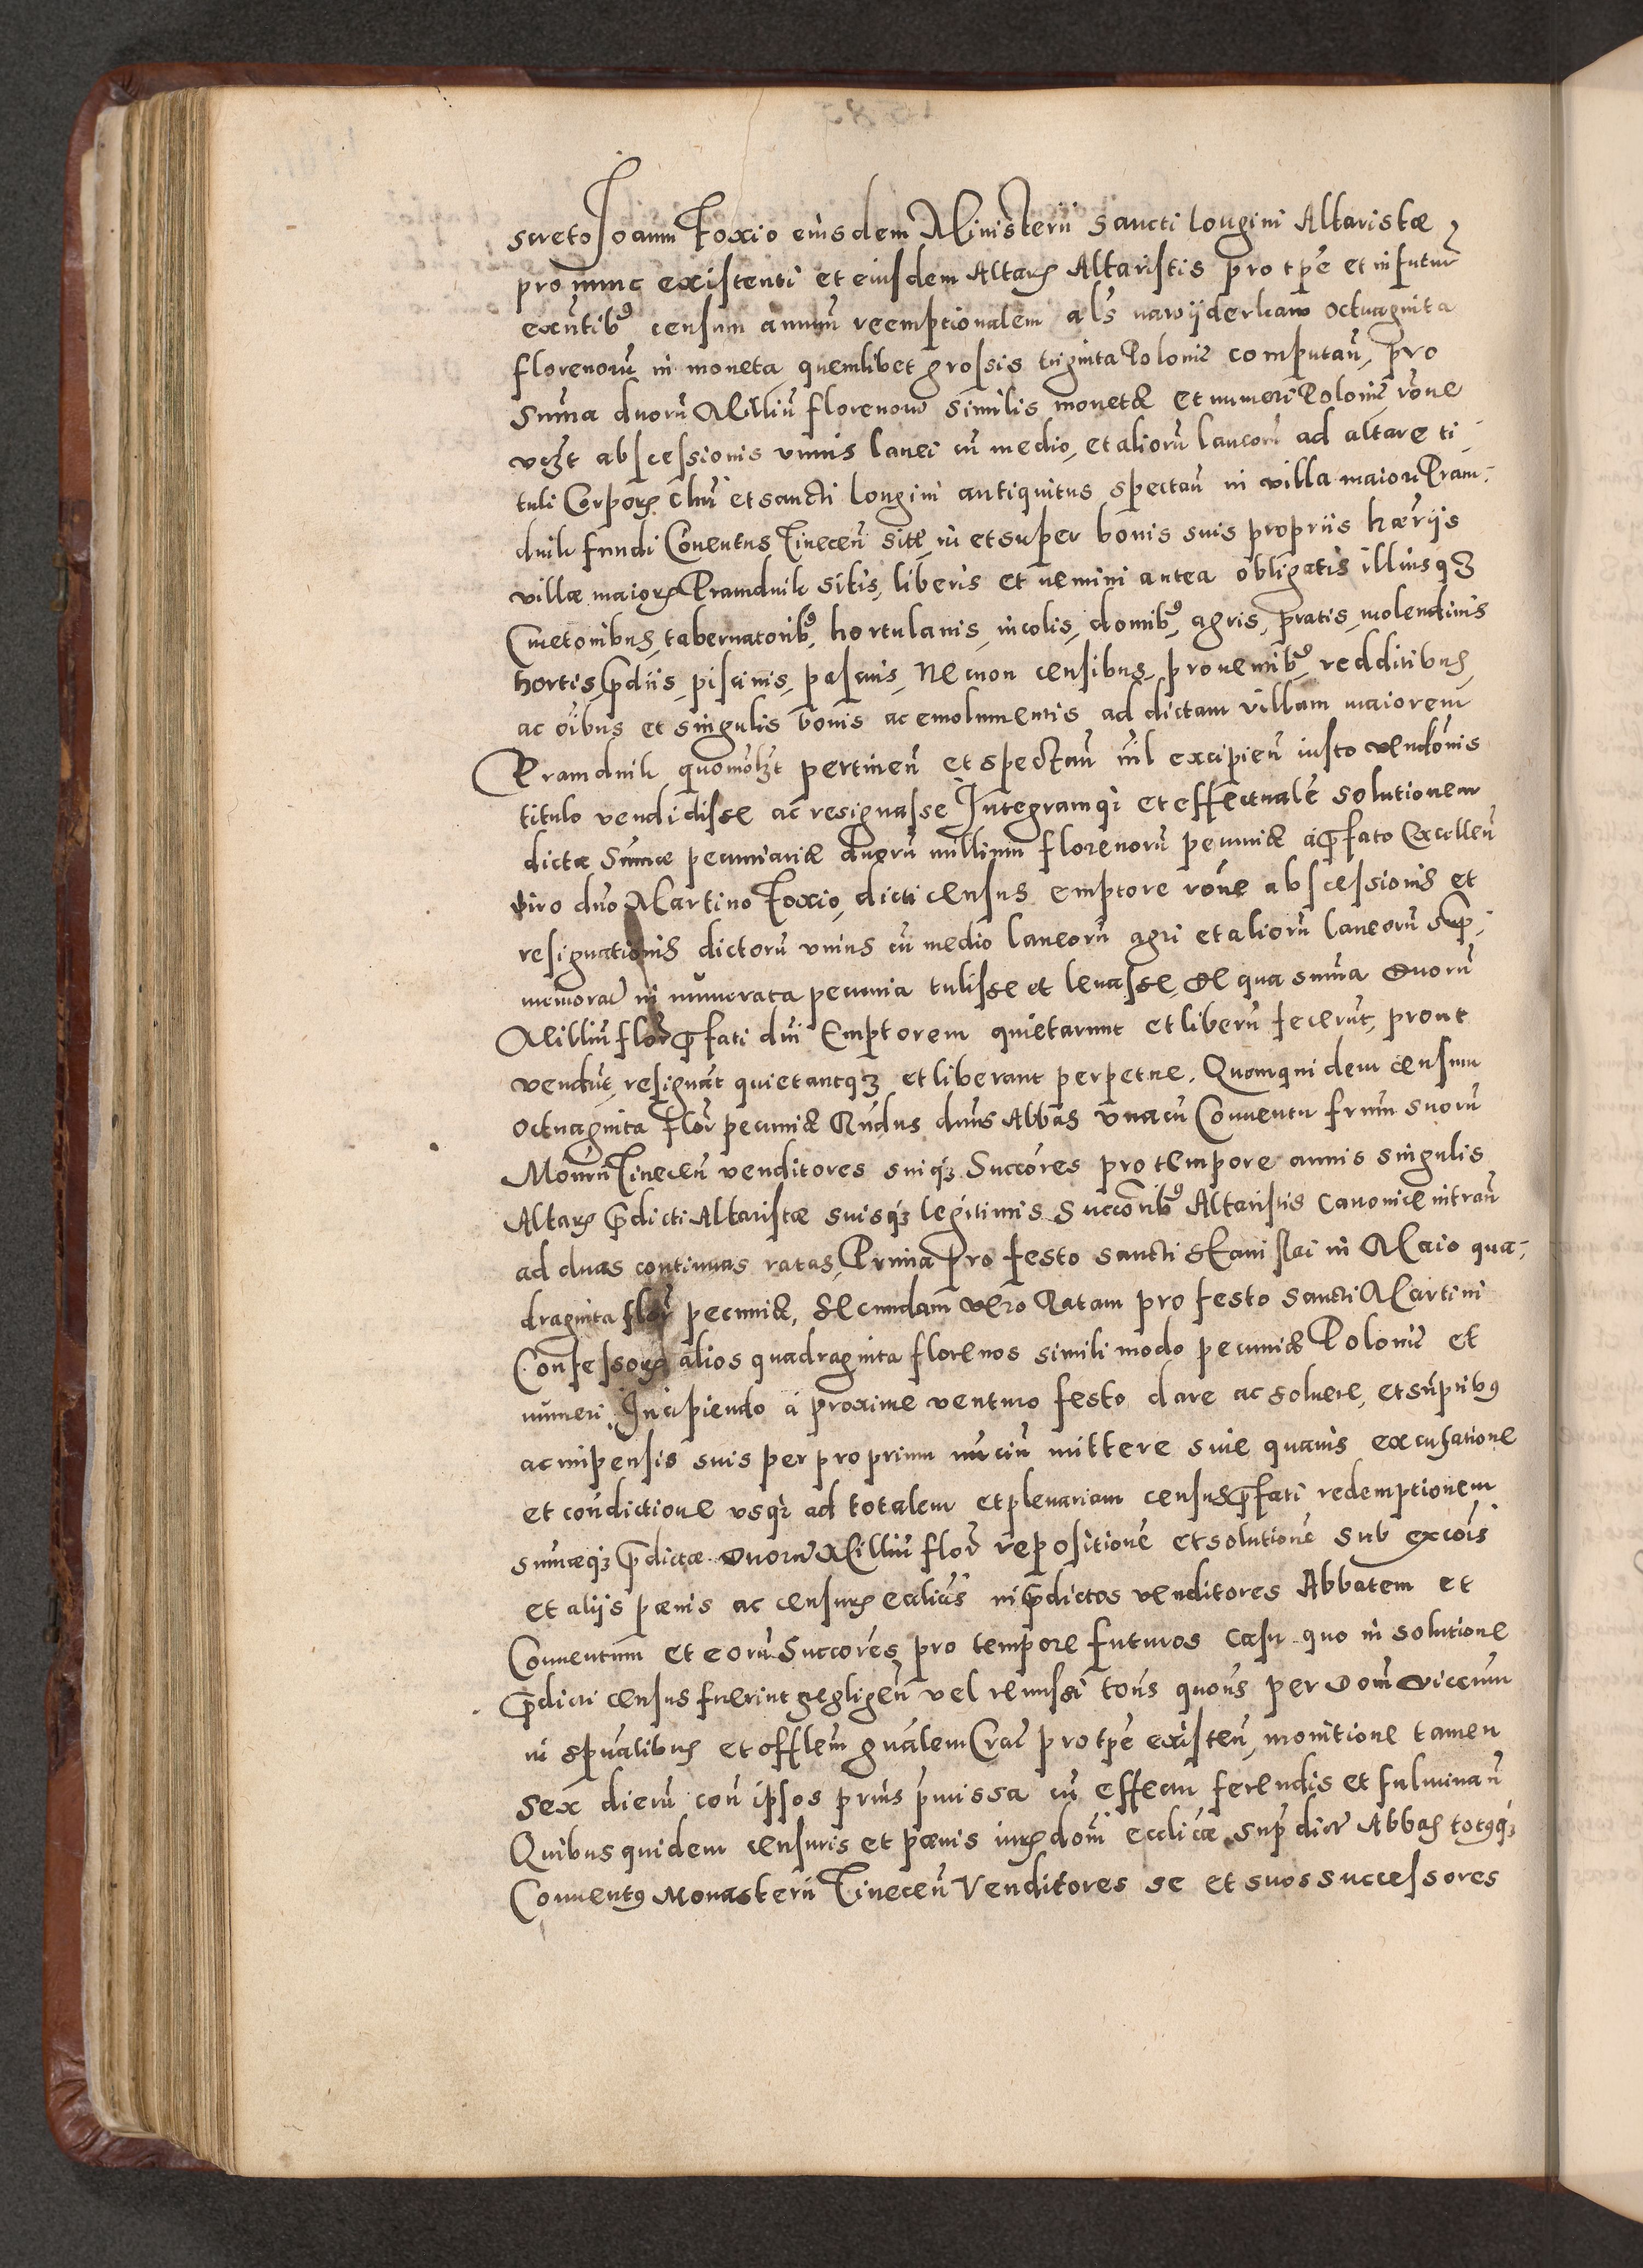 screto Joanni Foxio eiusdem Ministerii Sancti Longini Altaristæ
pro nunc existenti et eiusdem Altarꝭ Altaristis pro tp̄e et in futur̄
exn̄tibꝰ censum annuū reemptionalem al's nawyderkaw octuaginta
florenorū in moneta quemlibet grossis triginta Poloniē computan̄, pro
Sum̄a duorū Milliū florenorū similis monetæ et numeri Polonic̄ rōne
vcꝫt abscessionis vnius lanei cū medio, et aliorū laneorū ad altare ti-
tuli Corporꝭ Chri et sancti Longini antiquitus spectan̄ in villa maiori Pram-
dnik fundi Conuentus Tinecen̄ sitæ, in et super bonis suis propriis hærijs
villæ maiorꝭ Pramdnik sitis, liberis et nemini antea obligatis illiusqꝫ
Cmetonibus, tabernatoribꝰ, hortulanis, incolis, domibꝰ, agris, pratis, molendinis
hortis, p̄diis, piscinis, pascuis, Necnon censibus, prouentibꝰ, redditibus,
ac oībus et singulis bonis ac emolumentis ad dictam villam maiorem
Pramdnik quomōlꝫt pertinen̄ et spectan̄ nīl excipien̄ iusto vendōnis
titulo vendidisse ac resignasse Integramqꝫ et effectualē solutionem
dictæ Sum̄æ pecuniariæ duorū millium florenorū pecuniæ a p̄fato Excellen̄
viro dn̄o Martino Foxio, dicti census emptore rōne abscessionis et
resignationis dictorū vnius cū medio laneorū agri et aliorū laneorū sup-
memorat̄ in numerata pecunia tulisse et leuasse, de qua sum̄a duorū
Milliū flor̄ p̄fati dn̄i Emptorem quietarunt et liberū fecerūt, prout
vendūt, resignāt quietantqꝫ et liberant perpetue. Quemquidem censum
Octuaginta flor̄ pecuniæ Rn̄dus dn̄us Abbas vna cū Conuentu frūm suorū
Monrū Tinecen̄ venditores suiqꝫ Succores pro tempore annis singulis
Altarꝭ p̄dicti Altaristæ suisqꝫ legitimis Succoribꝰ Altaristis canonice intran̄
ad duas continuas ratas, Prima pro festo sancti Stanislai in Maio qua-
draginta flor̄ pecuniæ, Secundam vero Ratam pro festo Sancti Martini
Confessorꝭ alios quadraginta florenos simili modo pecuniæ Polonic̄ et
numeri, Incipiendo á proxime venturo festo dare ac soluere, et sūptibꝰ
ac impensis suis per proprium nunciū mittere siue quauis excusatione
et condictione vsqꝫ ad totalem et plenariam census p̄fati redemptionem
sum̄æqꝫ p̄dictæ duorū Milliū flor̄ repositionē et solutionē sub excōis
et alijs pænis ac censurꝭ ecclicis in p̄dictos venditores Abbatem et
Conuentum et eorū Succores pro tempore futuros casu quo in solutione
p̄dicti census fuerint negligen̄ vel remissi tōns quōns per Dom̄ vicarium
in spualibus et offlem gn̄alem Crac̄ pro tp̄e existen̄, monitione tamen
sex dierū con̄ ipsos prius p̄missa cū effectu ferendis et fulminan̄
Quibus quidem censuris et pænis iurꝭ dom̄ ecclicæ supdict̄ Abbas totꝰqꝫ
Conuentꝰ Monasterii Tinecen̄ Venditores se et suos successores